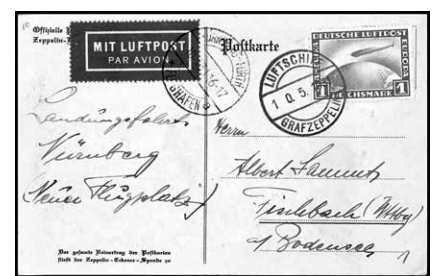 Offizielle
Zeppelin-
MIT LUFTPOST
PAR AVION
16-17
HAFEN
Postkarte
LUFTSCHIFF
1 0. 5.
GRAF ZEPPELIN
DEUTSCHE LUFTPOST
EUROPA
1
1
REICHSMARK
Landungsfahrt
Nürnberg
(Neuer Flugplatz)
Herrn
Albert Sammt
Fischbach (Wttbg)
a/Bodensee
Der gesamte Reinertrag der Postkarten
fließt der Zeppelin-Eckener-Spende zu